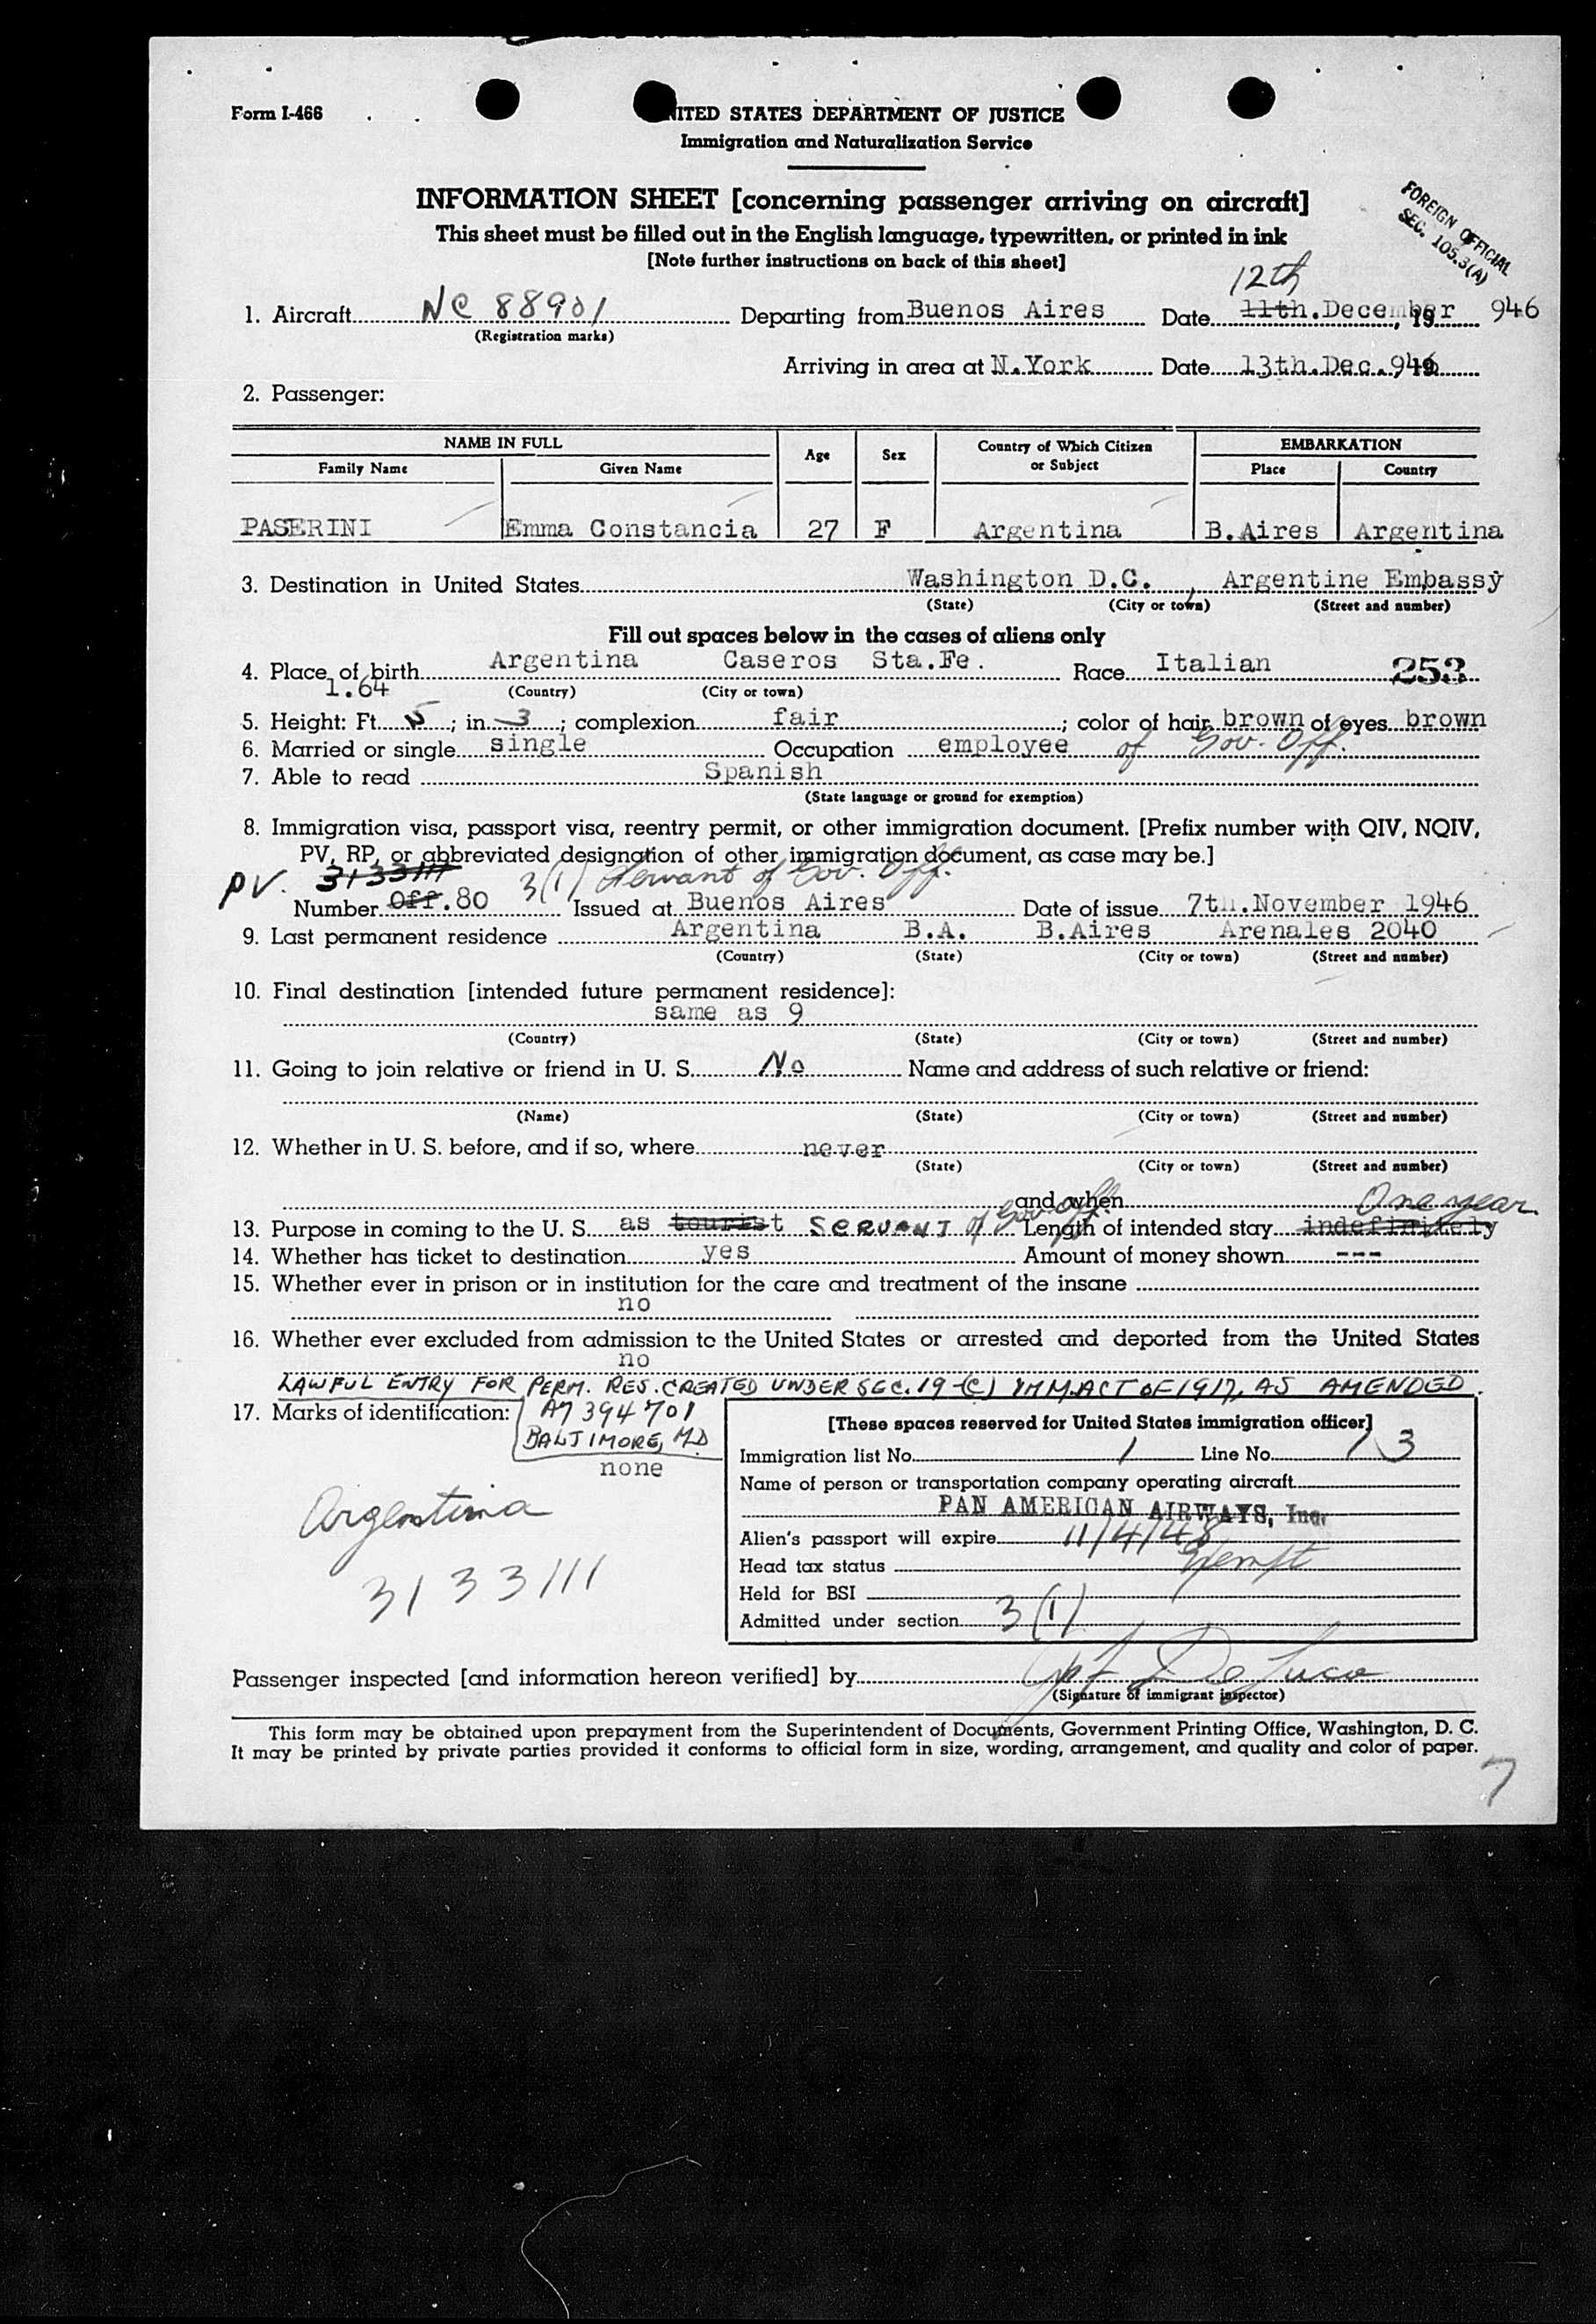 Form I-466
UNITED STATES DEPARTMENT OF JUSTICE
Immigration and Naturalization Service
INFORMATION SHEET [concerning passenger arriving on aircraft]
This sheet must be filled out in the English language, typewritten, or printed in ink
[Note further instructions on back of this sheet]
FOREIGN OFFICIAL
SEC. 105.3(A)
12th
1. Aircraft NC 88901 Departing from Buenos Aires Date 11th.December, 19 946
(Registration marks)
Arriving in area at N.York Date 13th.Dec.946, 19
2. Passenger:
NAME IN FULL Age Sex Country of Which Citizen or Subject EMBARKATION
Family Name Given Name Place Country
PASERINI Emma Constancia 27 F Argentina B.Aires Argentina
3. Destination in United States Washington D.C. , Argentine Embassy
(State) (City or town) (Street and number)
Fill out spaces below in the cases of aliens only
4. Place of birth Argentina Caseros Sta.Fe. Race Italian 253
1.64 (Country) (City or town)
5. Height: Ft. 5; in. 3; complexion fair; color of hair brown of eyes brown
6. Married or single single Occupation employee of Gov. Off.
7. Able to read Spanish
(State language or ground for exemption)
8. Immigration visa, passport visa, reentry permit, or other immigration document. [Prefix number with QIV, NQIV,
PV, RP, or abbreviated designation of other immigration document, as case may be.]
PV. 3133111 3(1) Servant of Gov. Off.
Number Off.80 Issued at Buenos Aires Date of issue 7th.November 1946
9. Last permanent residence Argentina B.A. B.Aires Arenales 2040
(Country) (State) (City or town) (Street and number)
10. Final destination [intended future permanent residence]:
same as 9
(Country) (State) (City or town) (Street and number)
11. Going to join relative or friend in U. S. No Name and address of such relative or friend:
(Name) (State) (City or town) (Street and number)
12. Whether in U. S. before, and if so, where never
(State) (City or town) (Street and number)
and when
One year
13. Purpose in coming to the U. S. as tourist SERVANT of Gov. Off. Length of intended stay indefinitely
14. Whether has ticket to destination yes Amount of money shown ---
15. Whether ever in prison or in institution for the care and treatment of the insane
no
16. Whether ever excluded from admission to the United States or arrested and deported from the United States
no
LAWFUL ENTRY FOR PERM. RES. CREATED UNDER SEC. 19-(C) IMM. ACT OF 1917, AS AMENDED.
17. Marks of identification: A7394701
BALTIMORE, MD
none
Argentina
3133111
[These spaces reserved for United States immigration officer]
Immigration list No. 1 Line No. 13
Name of person or transportation company operating aircraft
PAN AMERICAN AIRWAYS, Inc.
Alien's passport will expire 11/4/48
Head tax status Exempt
Held for BSI
Admitted under section 3(1)
Passenger inspected [and information hereon verified] by De Luca
(Signature of immigrant inspector)
This form may be obtained upon prepayment from the Superintendent of Documents, Government Printing Office, Washington, D. C.
It may be printed by private parties provided it conforms to official form in size, wording, arrangement, and quality and color of paper.
7